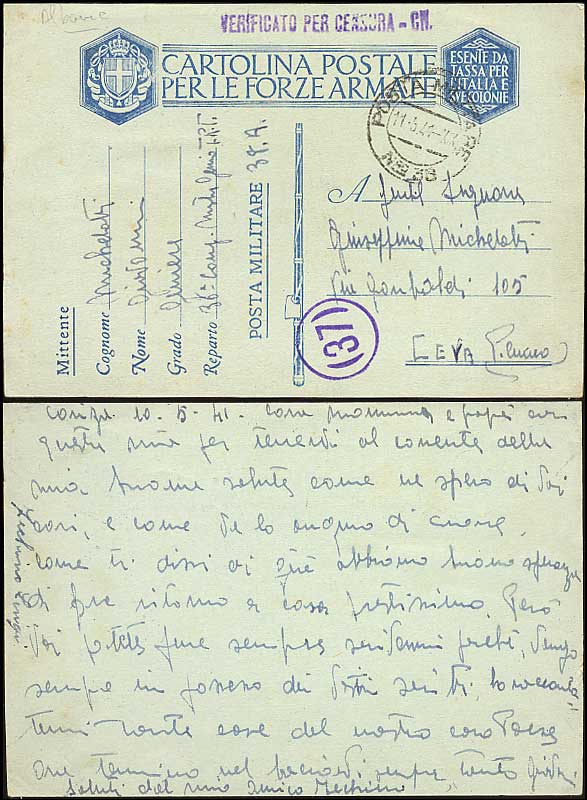 Albania
VERIFICATO PER CENSURA - CN.
CARTOLINA POSTALE
PER LE FORZE ARMATE
ESENTE DA
TASSA PER
L'ITALIA E
SUE COLONIE
POSTA MILITARE
Mittente
Cognome Michelotti
Nome
Grado Geniere
Reparto 36ª Comp.
POSTA MILITARE 38.A.
A
Giuseppina Michelotti
Via Garibaldi 105
CEVA (Cuneo)
(37)
10-5-41 Cara mamma e papà con
questa mia per tenervi al corrente della
mia buona salute come ne spero di Voi
cari, e come ve lo auguro di cuore.
come ti dissi di già abbiamo buona speranza
di fare ritorno a casa prestissimo. Però
Voi potete fare sempre
sempre in possesso dei Vostri scritti,
tante cose del nostro caro Paese
Ora termino nel baciarvi sempre tanto
Saluti dal mio amico